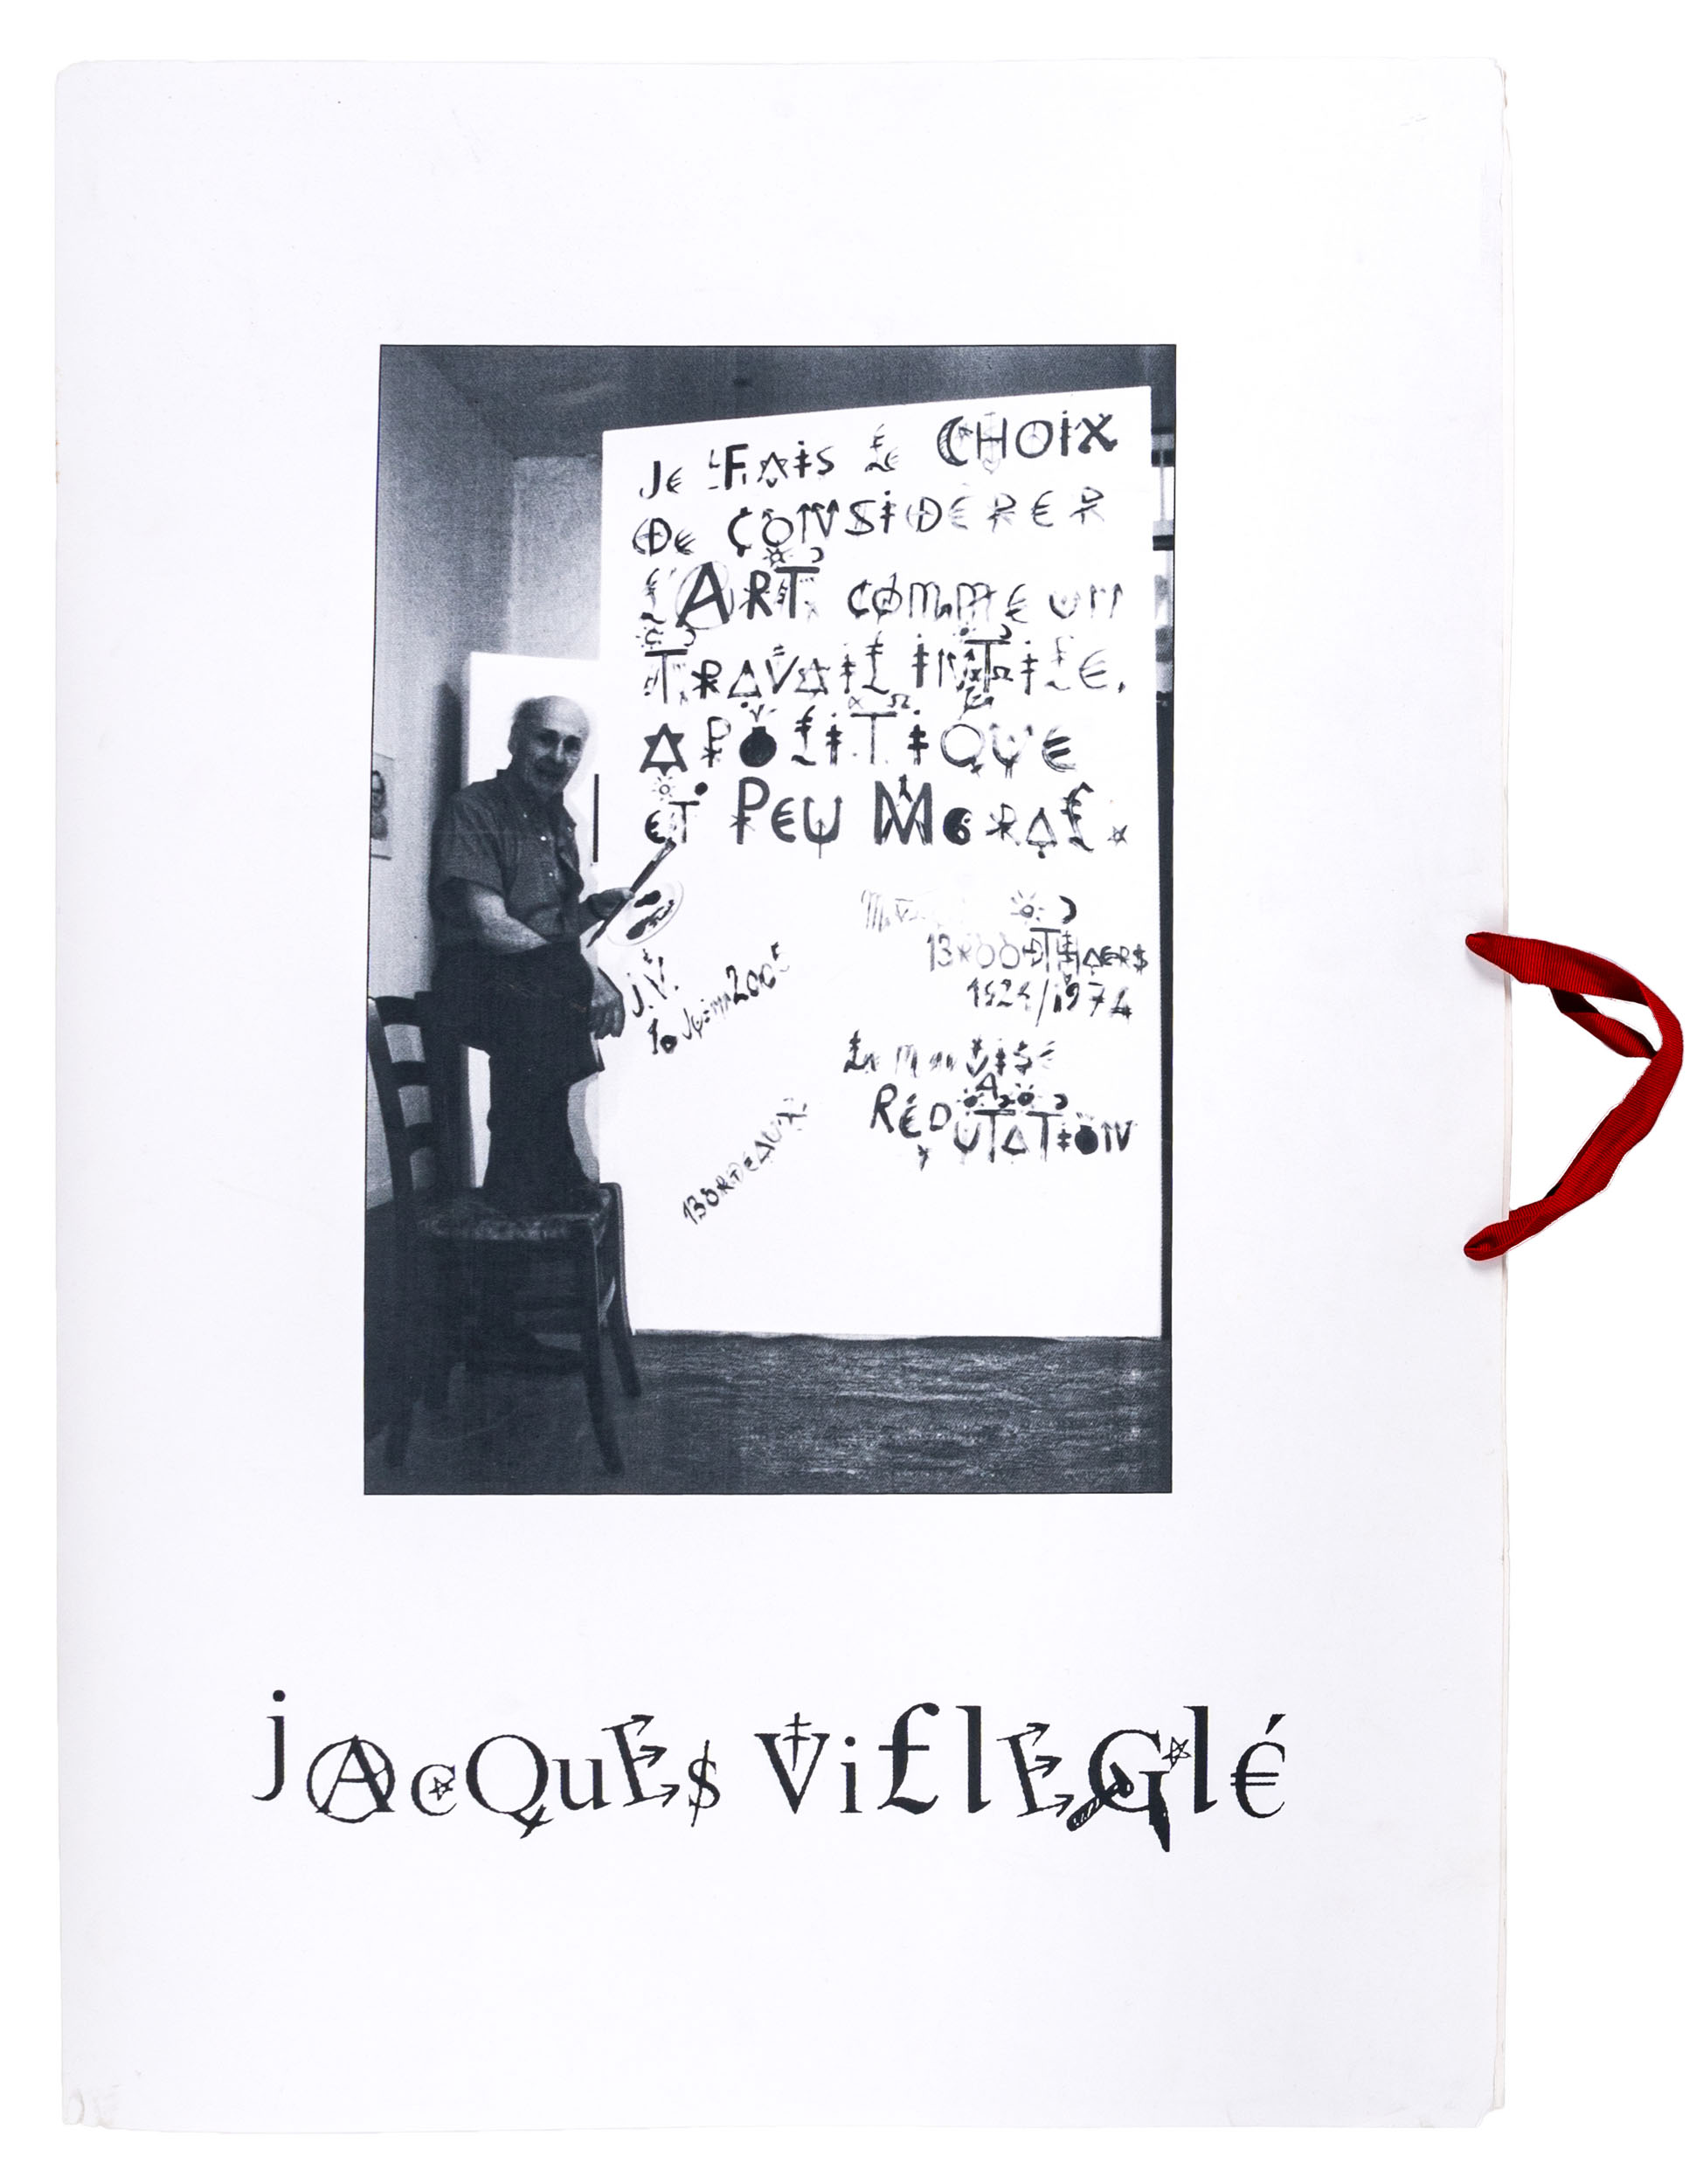 Je Fais le CHOIX
De CONSiDÉRER
l'ART comme un
TRAVAiL iNUTiLE,
APOLiTiQUE
eT PEU MORAL.
BROODTHAERS
J.V.
10 Juin 2005
La mauvaise
RÉPUTATiON
BORDEAUX
jAcQuE$ Vi£lEGl€́